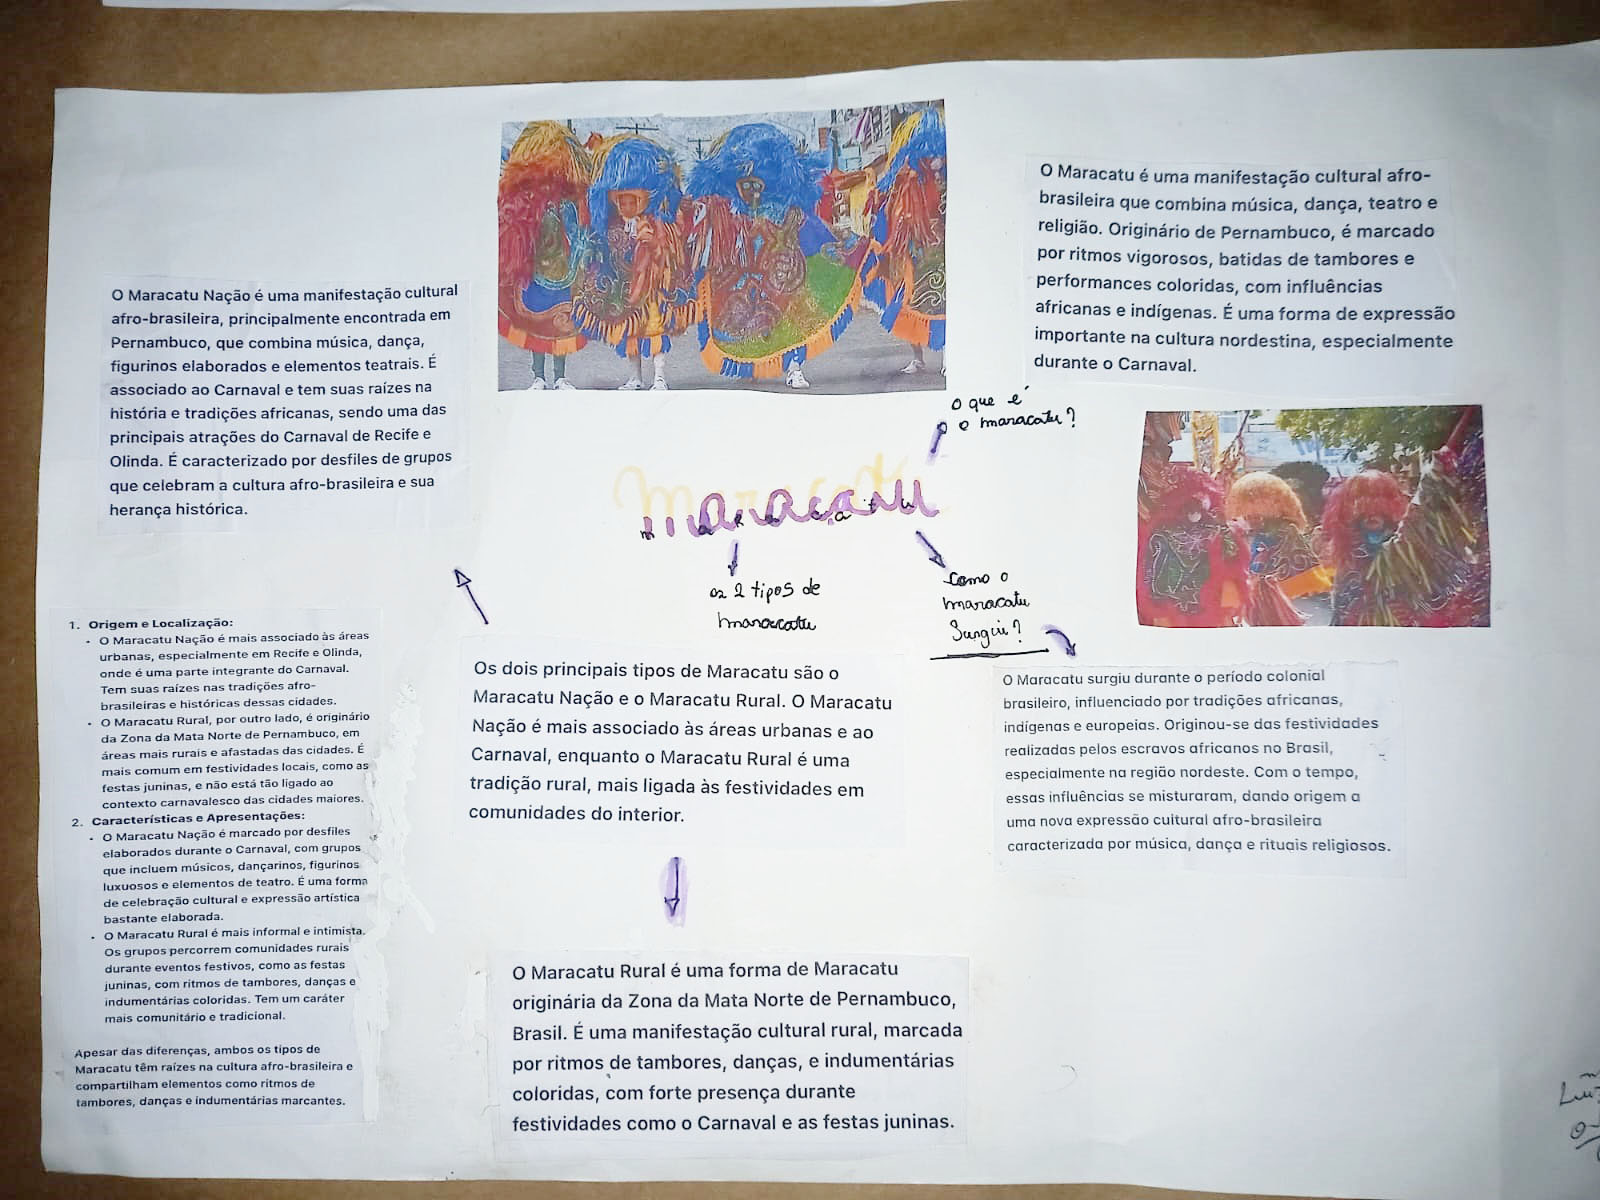 O Maracatu é uma manifestação cultural afro-
brasileira que combina música, dança, teatro e
religião. Originário de Pernambuco, é marcado
por ritmos vigorosos, batidas de tambores e
performances coloridas, com influências
africanas e indígenas. É uma forma de expressão
importante na cultura nordestina, especialmente
durante o Carnaval.
O Maracatu Nação é uma manifestação cultural
afro-brasileira, principalmente encontrada em
Pernambuco, que combina música, dança,
figurinos elaborados e elementos teatrais. É
associado ao Carnaval e tem suas raízes na
história e tradições africanas, sendo uma das
principais atrações do Carnaval de Recife e
Olinda. É caracterizado por desfiles de grupos
que celebram a cultura afro-brasileira e sua
herança histórica.
O que é
o maracatu?
maracatu
os 2 tipos de
maracatu
Como o
maracatu
Surgiu?
1. Origem e Localização:
• O Maracatu Nação é mais associado às áreas
urbanas, especialmente em Recife e Olinda,
onde é uma parte integrante do Carnaval.
Tem suas raízes nas tradições afro-
brasileiras e históricas dessas cidades.
• O Maracatu Rural, por outro lado, é originário
da Zona da Mata Norte de Pernambuco, em
áreas mais rurais e afastadas das cidades. É
mais comum em festividades locais, como as
festas juninas, e não está tão ligado ao
contexto carnavalesco das cidades maiores.
2. Características e Apresentações:
• O Maracatu Nação é marcado por desfiles
elaborados durante o Carnaval, com grupos
que incluem músicos, dançarinos, figurinos
luxuosos e elementos de teatro. É uma forma
de celebração cultural e expressão artística
bastante elaborada.
• O Maracatu Rural é mais informal e intimista.
Os grupos percorrem comunidades rurais
durante eventos festivos, como as festas
juninas, com ritmos de tambores, danças e
indumentárias coloridas. Tem um caráter
mais comunitário e tradicional.
Apesar das diferenças, ambos os tipos de
Maracatu têm raízes na cultura afro-brasileira e
compartilham elementos como ritmos de
tambores, danças e indumentárias marcantes.
Os dois principais tipos de Maracatu são o
Maracatu Nação e o Maracatu Rural. O Maracatu
Nação é mais associado às áreas urbanas e ao
Carnaval, enquanto o Maracatu Rural é uma
tradição rural, mais ligada às festividades em
comunidades do interior.
O Maracatu surgiu durante o período colonial
brasileiro, influenciado por tradições africanas,
indígenas e europeias. Originou-se das festividades
realizadas pelos escravos africanos no Brasil,
especialmente na região nordeste. Com o tempo,
essas influências se misturaram, dando origem a
uma nova expressão cultural afro-brasileira
caracterizada por música, dança e rituais religiosos.
O Maracatu Rural é uma forma de Maracatu
originária da Zona da Mata Norte de Pernambuco,
Brasil. É uma manifestação cultural rural, marcada
por ritmos de tambores, danças, e indumentárias
coloridas, com forte presença durante
festividades como o Carnaval e as festas juninas.